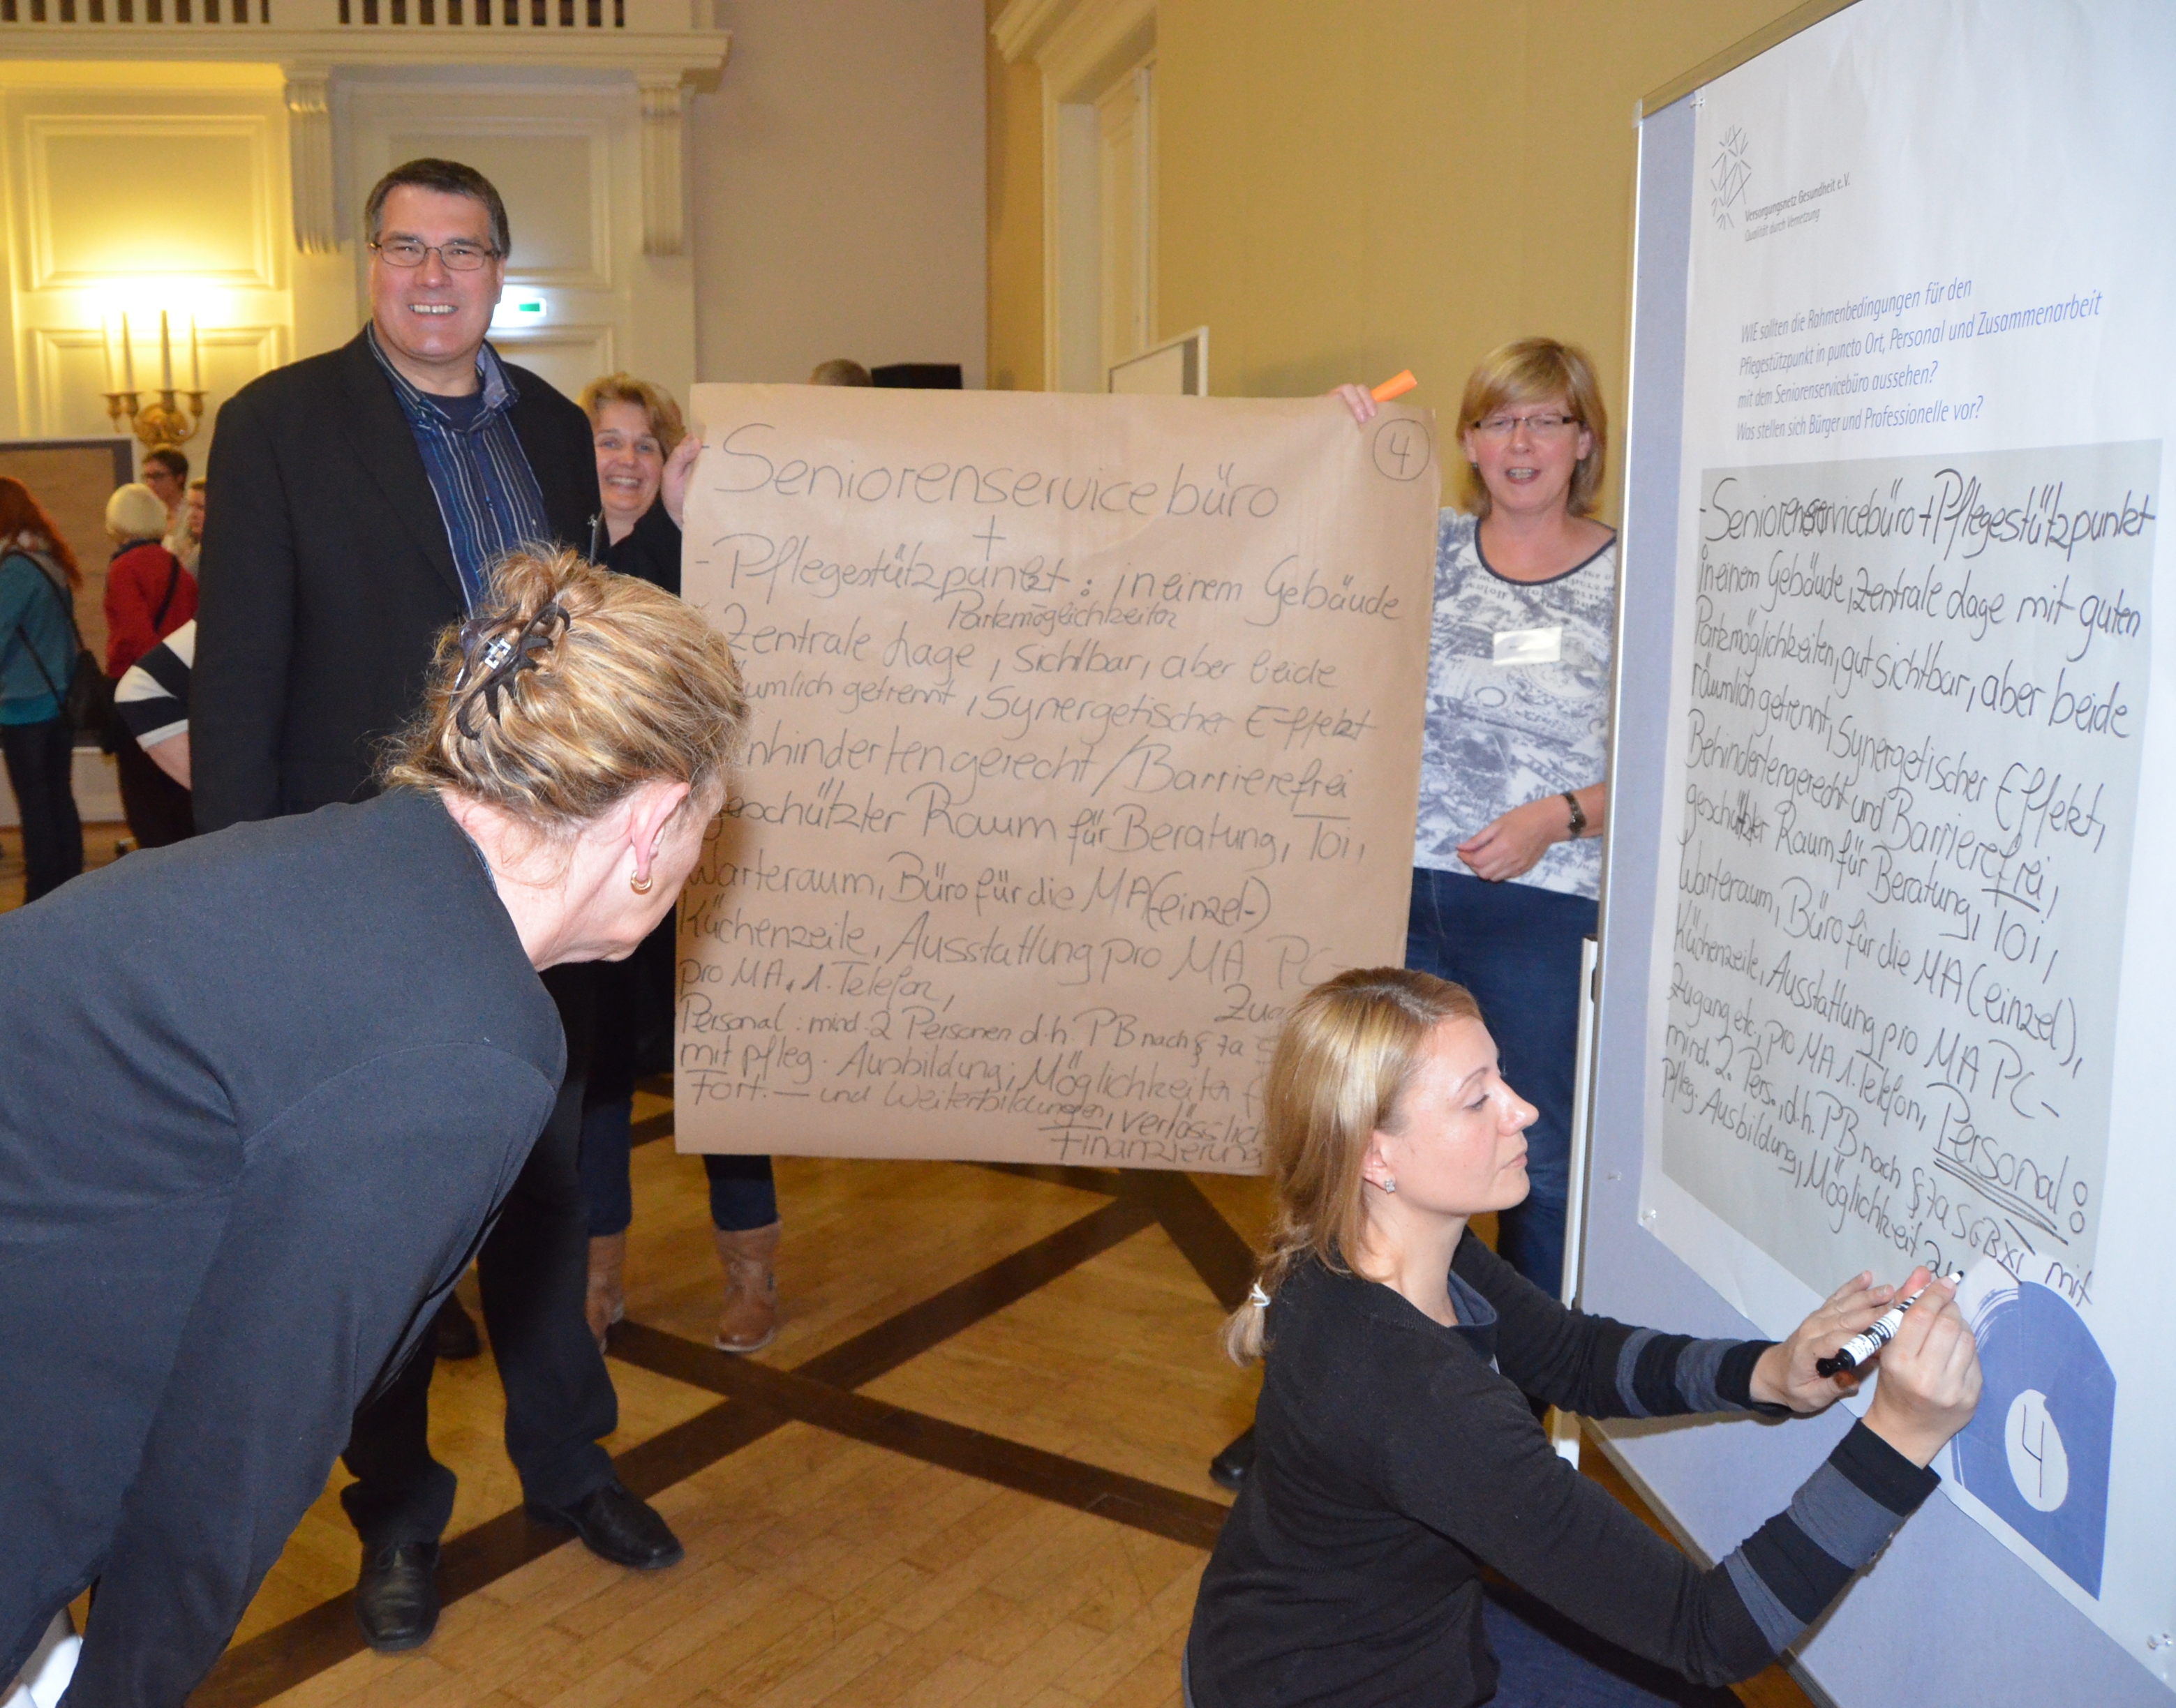 - Seniorenservicebüro
+
- Pflegestützpunkt : in einem Gebäude
Parkmöglichkeiten
Zentrale Lage, Sichtbar, aber beide
umlich getrennt, Synergetischer Effekt
nhindertengerecht / Barrierefrei
geschützter Raum für Beratung, Toi,
Warteraum, Büro für die MA (einzel-)
Küchenzeile, Ausstattung pro MA PC-
pro MA. 1. Telefon, Zug
Personal : mind. 2 Personen d.h. PB nach § 7a
mit pfleg. Ausbildung, Möglichkeiten f
Fort. — und Weiterbildungen, verlässlich
Finanzierung
4
Versorgungsnetz Gesundheit e.V.
Qualität durch Vernetzung
WIE sollten die Rahmenbedingungen für den
Pflegestützpunkt in puncto Ort, Personal und Zusammenarbeit
mit dem Seniorenservicebüro aussehen?
Was stellen sich Bürger und Professionelle vor?
- Seniorenservicebüro + Pflegestützpunkt
in einem Gebäude, Zentrale Lage mit guten
Parkmöglichkeiten, gut sichtbar, aber beide
räumlich getrennt, Synergetischer Effekt,
Behindertengerecht und Barrierefrei,
geschützter Raum für Beratung, Toi,
Warteraum, Büro für die MA (einzel),
Küchenzeile, Ausstattung pro MA PC-
Zugang etc, pro MA 1. Telefon, Personal :
mind. 2. Pers., d.h. PB nach § 7a SGB XI mit
pfleg. Ausbildung, Möglichkeit zu
4